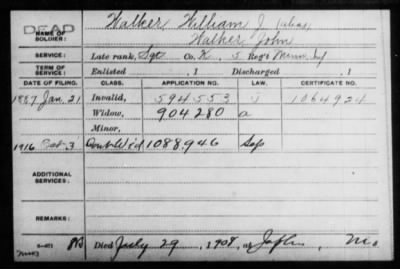 DEAD
NAME OF SOLDIER: Walker William J (alias)
Walker John
SERVICE: Late rank, Sgt Co. K, 5 Reg't Minn. Inf
TERM OF SERVICE: Enlisted , 1 Discharged , 1
DATE OF FILING. CLASS. APPLICATION NO. CERTIFICATE NO.
1887 Jan. 21 Invalid, 594553 1064924
Widow, 904280 a
Minor,
1916 3 1088.946
ADDITIONAL SERVICES:
REMARKS:
Died July 29, 1908, at Joplin, Mo